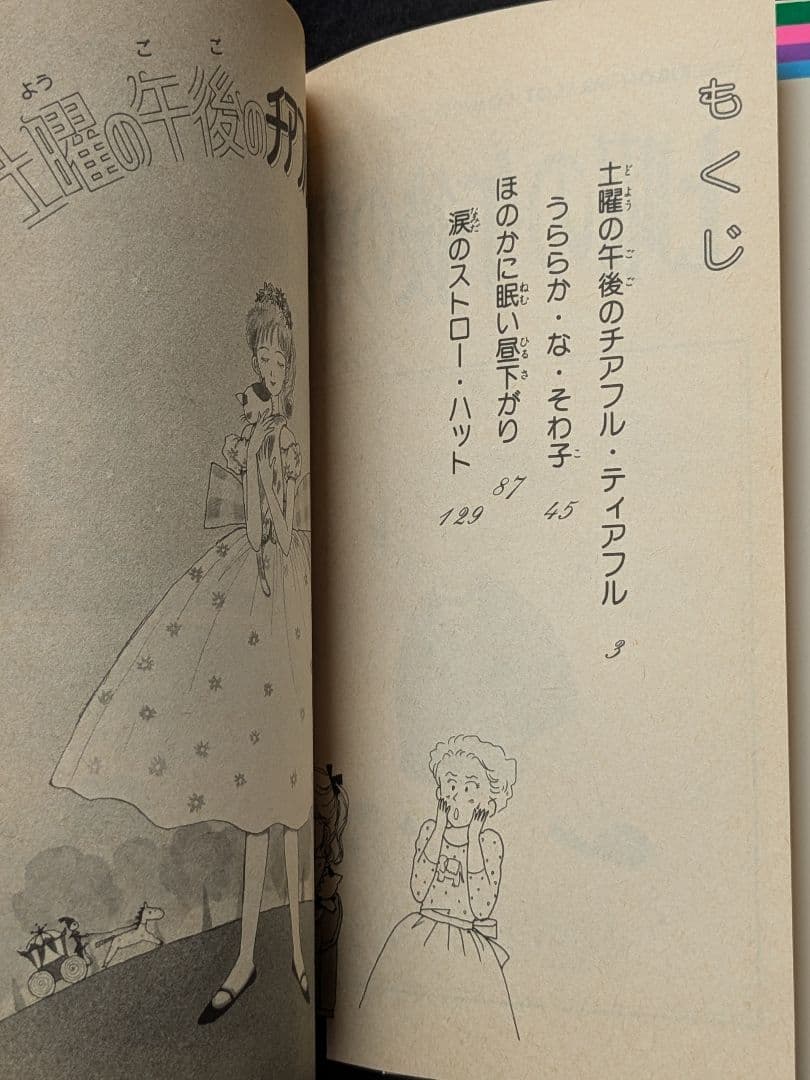 もくじ
土曜の午後のチアフル・ティアフル 3
うららか・な・そわ子 45
ほのかに眠い昼下がり 87
涙のストロー・ハット 129
土曜の午後のチア